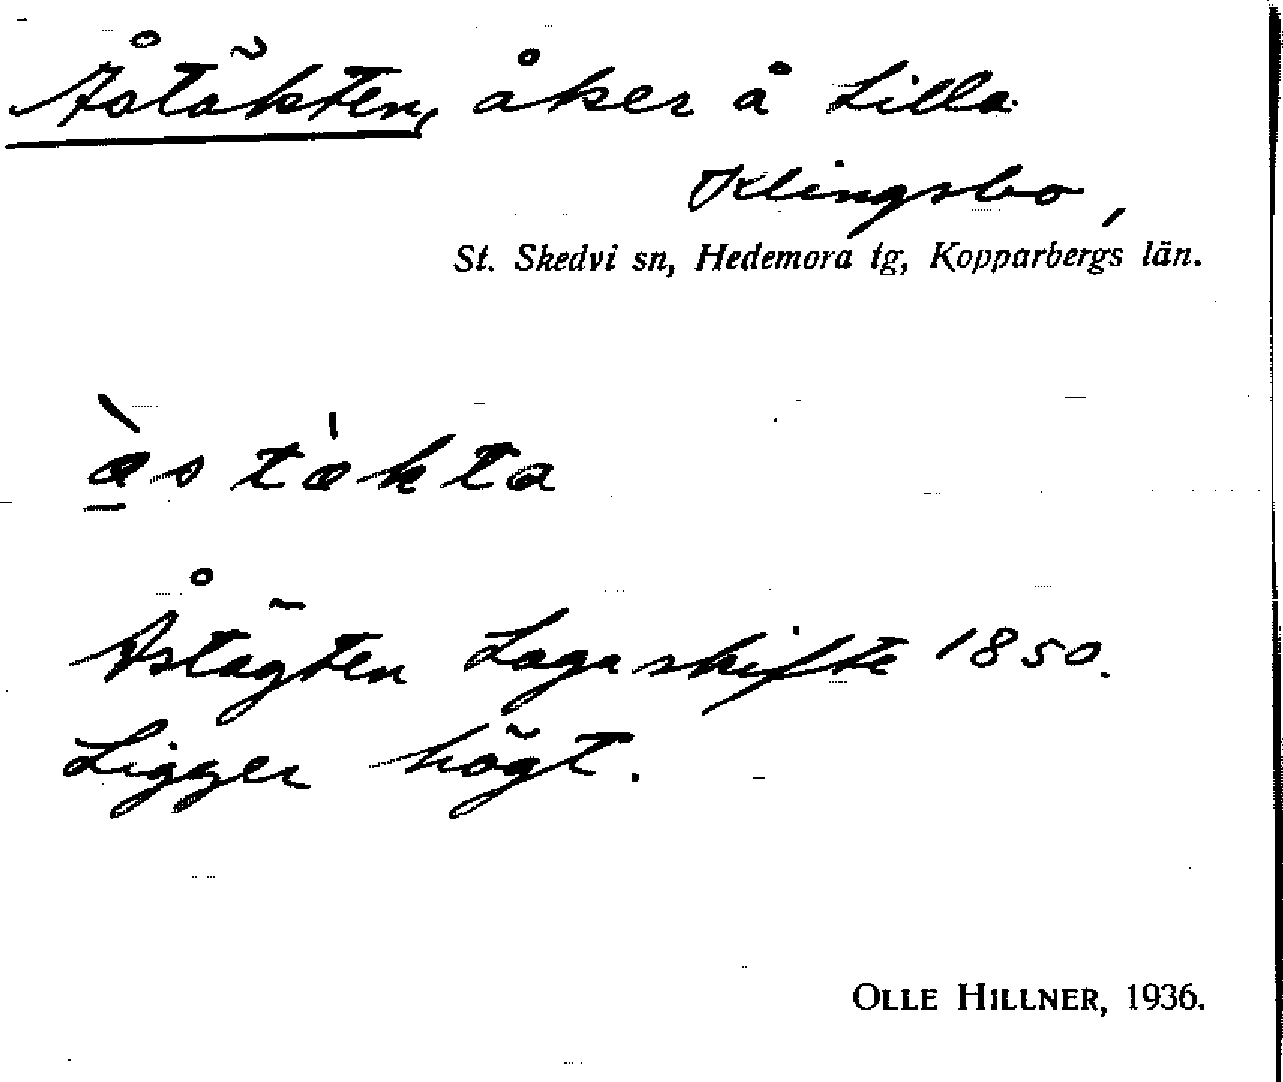 Åstäkten, åker å Lilla
Klingsbo,
St. Skedvi sn, Hedemora tg, Kopparbergs län.
Åstägten Laga skifte 1850.
Ligger högt.
OLLE HILLNER, 1936.